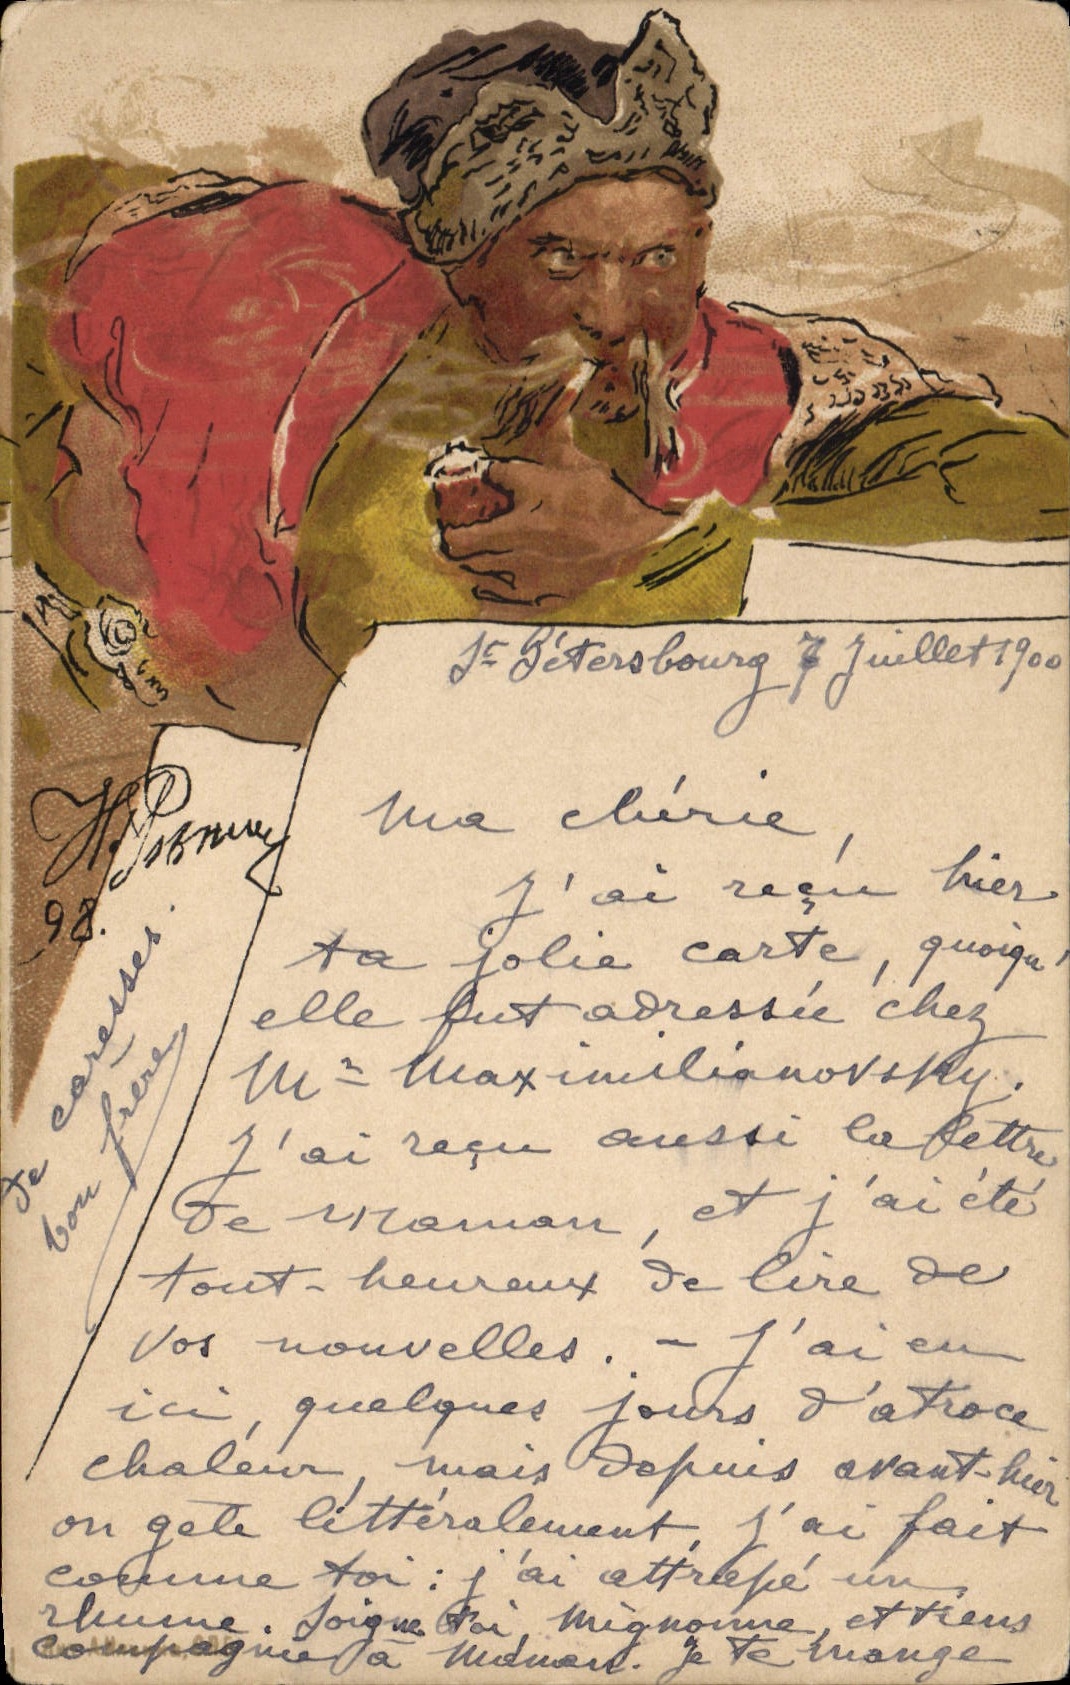 St Pétersbourg 7 Juillet 1900
Ma chérie,
J'ai reçu hier
ta jolie carte, quoiqu'
elle fut adressée chez
Mr Maximilianovsky.
J'ai reçu aussi la lettre
de Maman, et j'ai été
tout-heureux de lire de
vos nouvelles. - J'ai eu
ici, quelques jours d'atroce
chaleur, mais depuis avant-hier
on gèle littéralement, J'ai fait
comme toi: j'ai attrapé un
rhume. Soigne toi, Mignonne, et tiens
compagnie à Maman. Je te mange
de caresses.
ton frère
98.